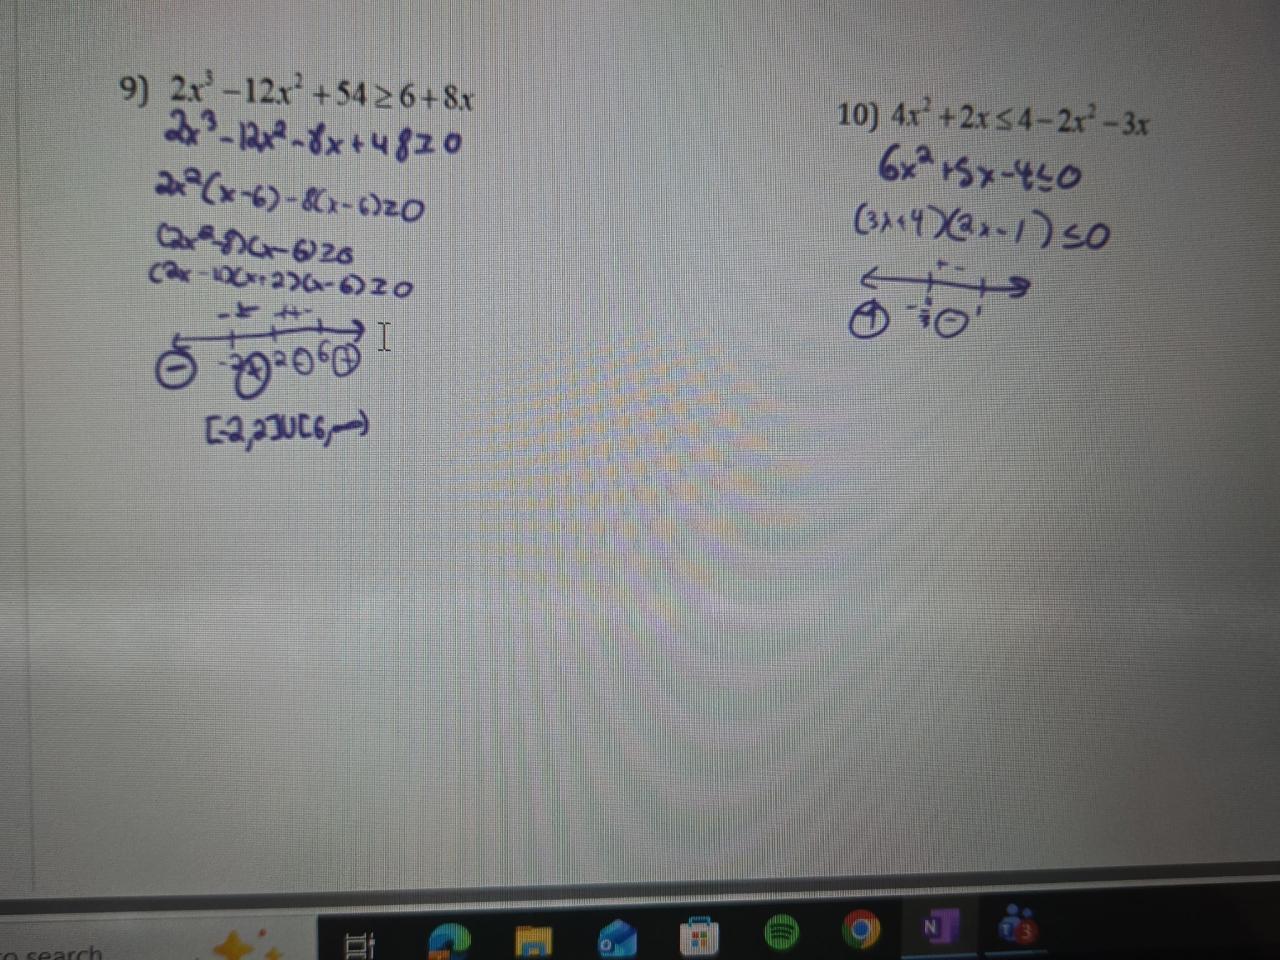 9) 2x³ −12x² + 54 ≥ 6 + 8x
2x³ - 12x² - 8x + 48 ≥ 0
2x²(x-6) - 8(x-6) ≥ 0
(2x²-8)(x-6) ≥ 0
(x+2)(x-6) ≥ 0
-2 2 6
− + − +
[-2,2]U[6,∞)
10) 4x² + 2x ≤ 4 − 2x² − 3x
6x² + 5x - 4 ≤ 0
(3x+4)(2x-1) ≤ 0
+ -
+ −
to search
N
3